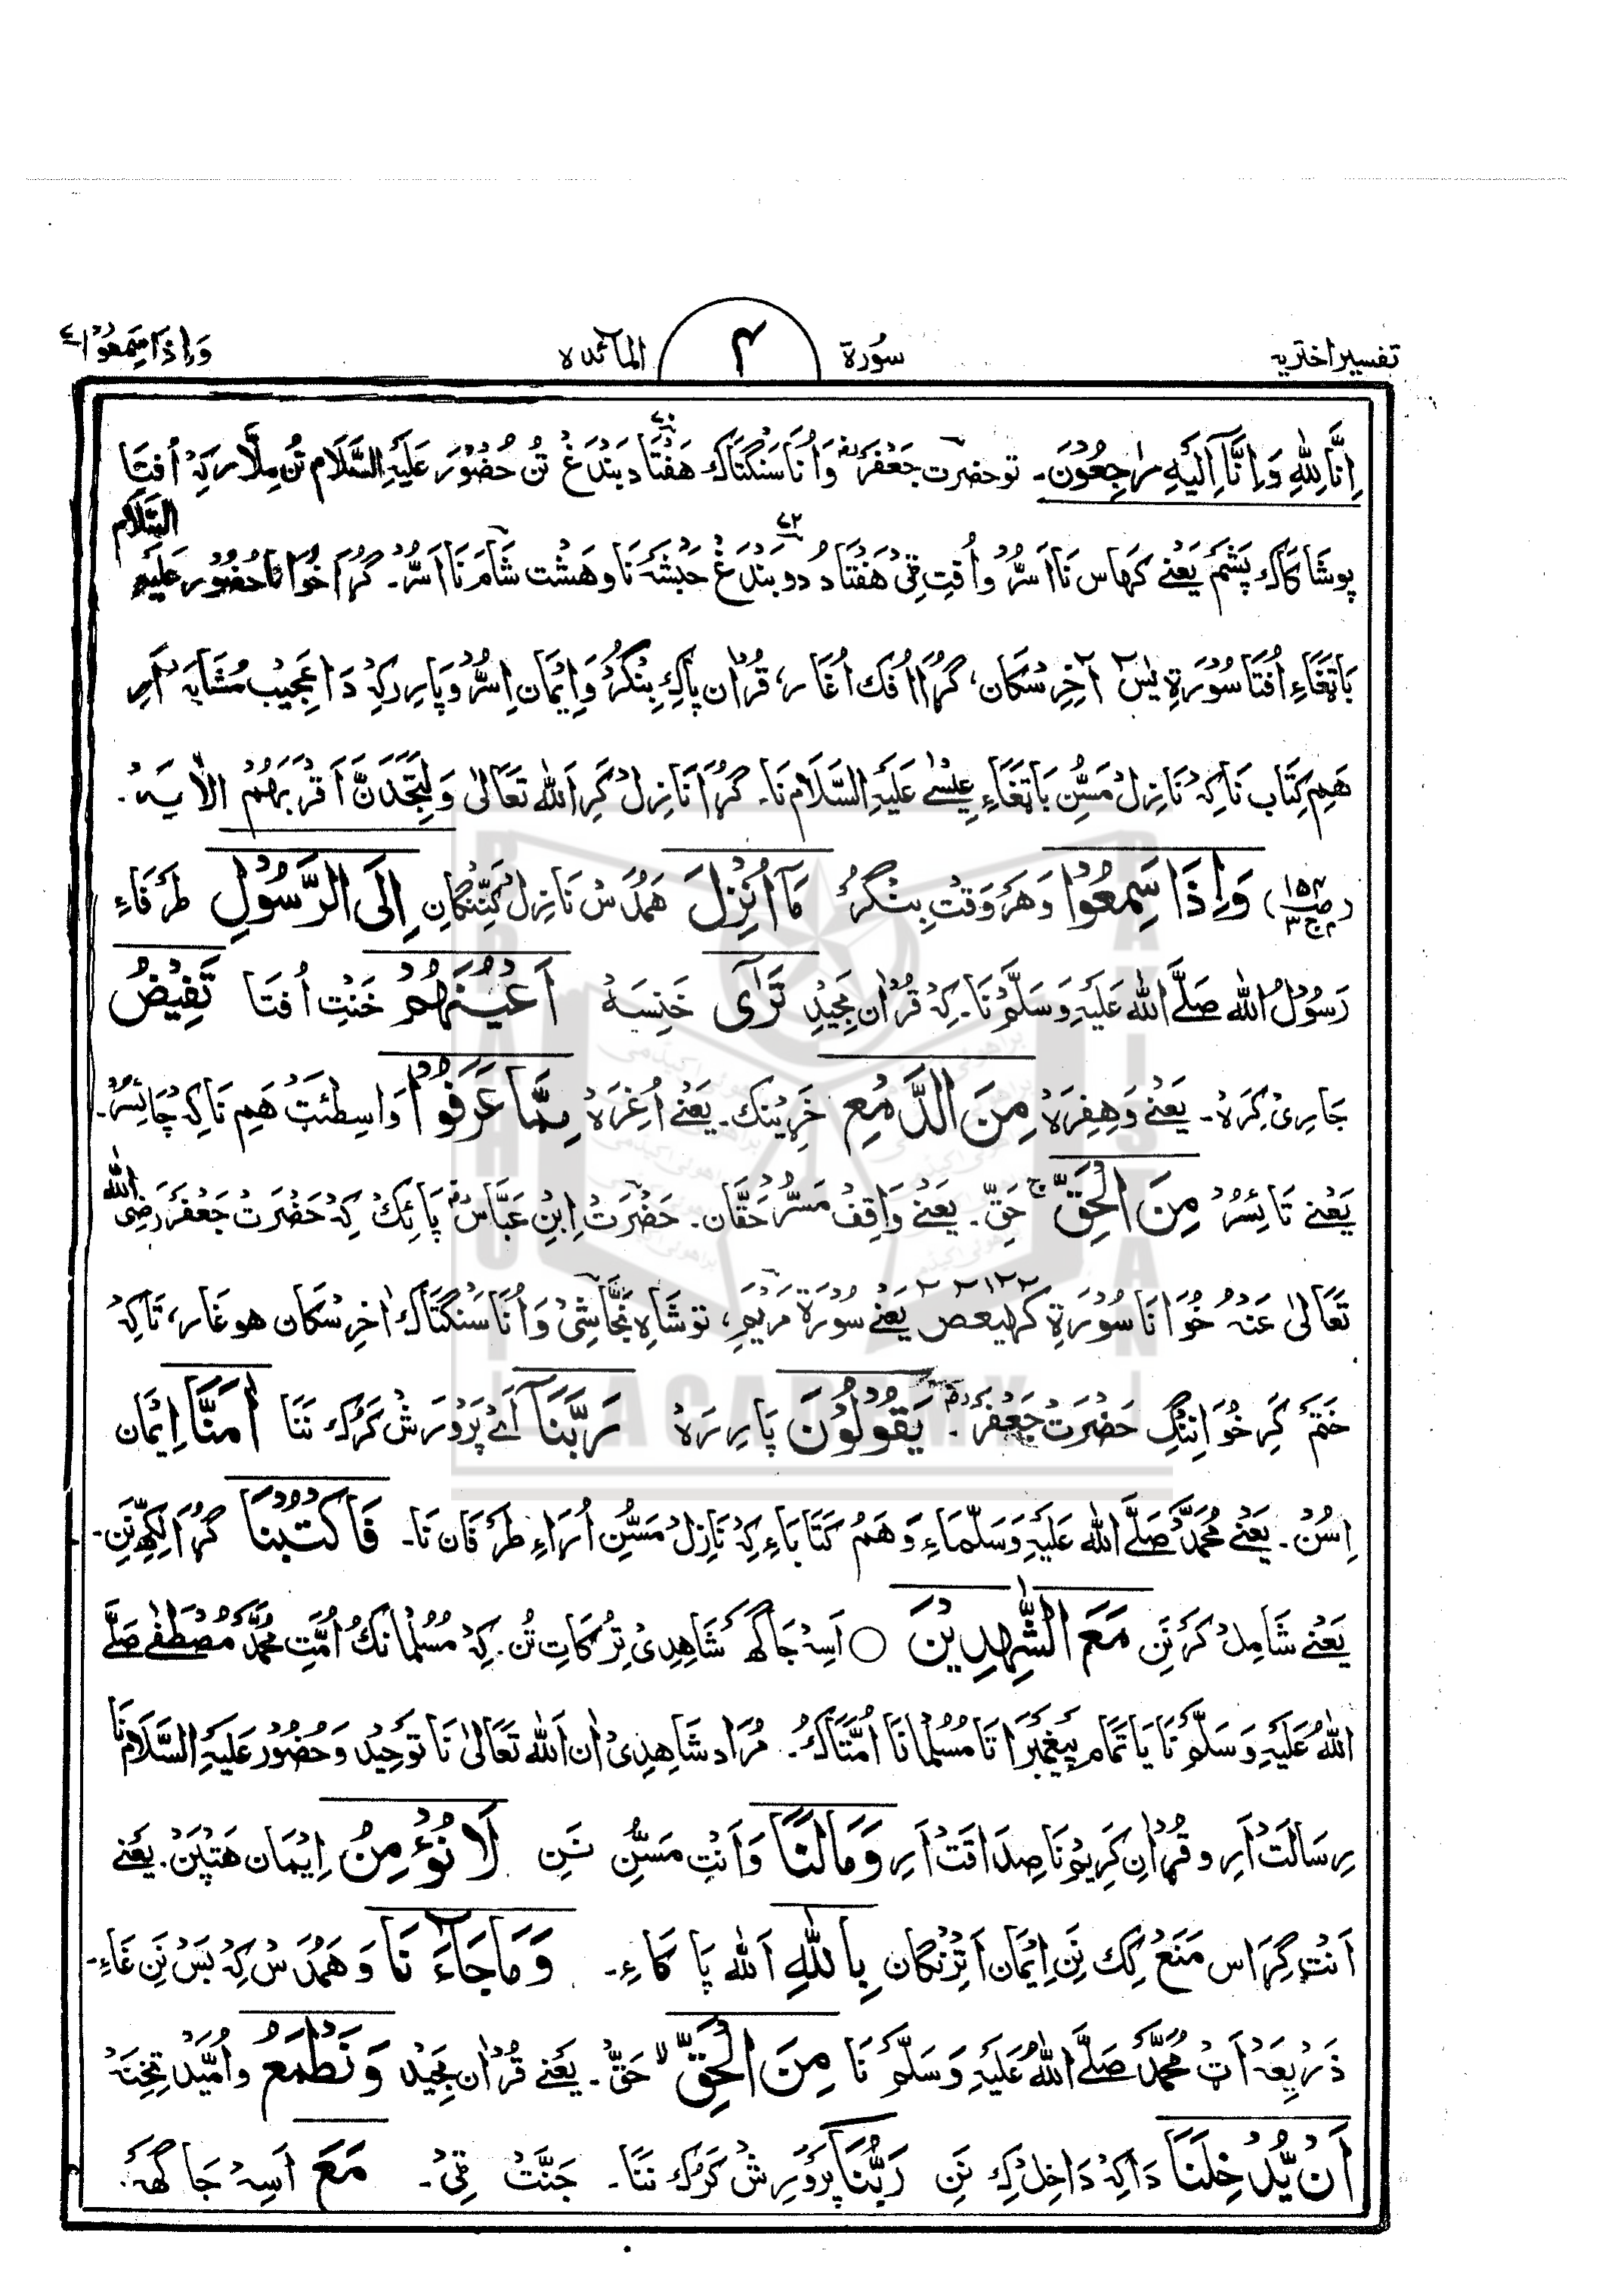 تفسیر اختریہ
سُورۃ
۴
المآئدہ
وَاِذَا سَمِعُوۡا ۷
اِنَّا لِلّٰہِ وَاِنَّاۤ اِلَیۡہِ رَاجِعُوۡنَ۔ تو حضرت جَعۡفَرؓ وَ اُنَا سَنۡگَتَاک ہَفۡتَاد بَنۡدَغ تُن حُضُوۡر عَلَیۡہِ السَّلَام تُن مِلَّار کِہ اُفتَا
پوشَاکَاک پَشۡم یَعۡنے کَہَاس نَا اَسُّر وَ اُفتِ قِیۡ ہَفۡتَاد دو بَنۡدَغ حَبۡشَہ نَا و ہَشت شَام نَا اَسُّر۔ گُڑَا خُوَانَا حُضُوۡر عَلَیۡہِ السَّلَام
بَاتَغَاءِ اُفتَا سُوۡرَۃِ یٰسٓ آخِرِسکَان، گُڑَا اُفک اُغَّار، قُرۡاٰن پَاکِ بِنۡگُر وَ اِیۡمَان اِسُّر و پَارِر کِہ دَا عَجِیۡب مُشَابَہ اَرِ
ہَمِ کِتَاب نَا کِہ نَازِلۡ مَسُّن بَاتَغَاءِ عِیسٰے عَلَیۡہِ السَّلَام نَا۔ گُڑَا نَازِلۡ کَرِ اَللّٰہ تَعَالٰی وَلَتَجِدَنَّ اَقۡرَبَہُمۡ الاٰیہ۔
(ص۱۵۳ ج۳) وَاِذَا سَمِعُوۡا وَ ہَر وَقتِ بِنۡگُرۡ مَاۤ اُنۡزِلَ ہَمُدس نَازِلۡ کَنِّنۡگَان اِلَی الرَّسُوۡلِ طَرَفَاءِ
رَسُوۡلُ اللّٰہ صَلَّے اللّٰہ عَلَیۡہِ وَسَلَّمۡ نَا۔ کِہ قُرۡاٰن مَجِیۡدِ تَرٰۤی خَنِسَہ اَعۡیُنَہُمۡ خَنتِ اُفتَا تَفِیۡضُ
جَارِیۡ کِرَہ۔ یَعۡنے وَہِفِرَہ مِنَ الدَّمۡعِ خَرِیۡنک۔ یَعۡنے اُغِرَہ مِمَّا عَرَفُوۡا وَاسِطَئٹ ہَم نَا کِہ چَائسُر۔
یَعۡنے تَائسُر مِنَ الۡحَقِّ ۚ حَقِّ۔ یَعۡنے وَاقِف مَسُّر حَقَّان۔ حَضۡرَتۡ اِبۡنِ عَبَّاسؓ پَائک کِہ حَضۡرَتۡ جَعۡفَر رَضِیَ اللّٰہ
تَعَالٰی عَنۡہُ خُوَانَا سُوۡرَۃِ کٓہٰیٰعٓصٓ یَعۡنے سُوۡرَۃ مَرۡیَم، تو شَاہِ نَجَّاشِیۡ وَ اُنَا سَنۡگَتَاک اٰخِرِسکَان ہوغَار، تَاکِہ
خَتَم کَرِ خُوَانِنۡگِ حَضۡرَتۡ جَعۡفَرؓ۔ یَقُوۡلُوۡنَ پَارِرَہ رَبَّنَاۤ اَے پَرۡوَرِشۡ کَرُک نَنَا اٰمَنَّا اِیۡمَان
اِسُنۡ۔ یَعۡنے مُحَمَّدۡ صَلَّے اللّٰہ عَلَیۡہِ وَسَلَّمَاءِ وَ ہَمُ کِتَابَاءِ کِہ نَازِلۡ مَسُّن اُرَاءِ طَرَفَان نَا۔ فَاکۡتُبۡنَا گُڑَا لِکۡھ نَنِ۔
یَعۡنے شَامِلۡ کَر نَنِ مَعَ الشّٰہِدِیۡنَ ○ اَسِہ جَاگَہ شَاہِدِیۡ تِرُکَاتِ تُن۔ کِہ مُسُلمَانک اُمَّتِ مُحَمَّدۡ مُصۡطَفٰے صَلَّے
اللّٰہُ عَلَیۡہِ وَسَلَّمۡ نَا یَا تَمَام پَیۡغَمبَرَاتَا مُسُلمَانَا اُمَّتَاک۔ مُرَاد شَاہِدِیۡ اٰن اَللّٰہ تَعَالٰی نَا تَوحِیۡد وَ حُضُوۡر عَلَیۡہِ السَّلَام نَا
رِسَالَتۡ اَرِ و قُرۡاٰن کَرِیۡم نَا صِدَاقَتۡ اَرِ وَمَا لَنَا وَ اَنتِ مَسُّنِ نَنِ لَا نُؤۡمِنُ اِیۡمَان ہَتپَنۡ۔ یَعۡنے
اَنۡتِ گِرَاس مَنَعۡ کِک نَنِ اِیۡمَان اَتِنۡگَان بِاللّٰہِ اَللّٰہ پَاکَاءِ۔ وَمَا جَآءَنَا وَ ہَمُدس کِہ بَسۡ نَن غَاءِ۔
ذَرِیۡعَہ اَٹ مُحَمَّدۡ صَلَّے اللّٰہُ عَلَیۡہِ وَسَلَّمۡ نَا مِنَ الۡحَقِّ ۙ حَقّ۔ یَعۡنے قُرۡاٰن مَجِیۡد وَنَطۡمَعُ و اُمِّیۡد تِخِنَہ
اَنۡ یُّدۡخِلَنَا دَاکِہ دَاخِلۡ کِ نَنِ رَبُّنَا پَرۡوَرِشۡ کَرُک نَنَا۔ جَنَّتۡ قِیۡ۔ مَعَ اَسِہ جَاگَہ۔